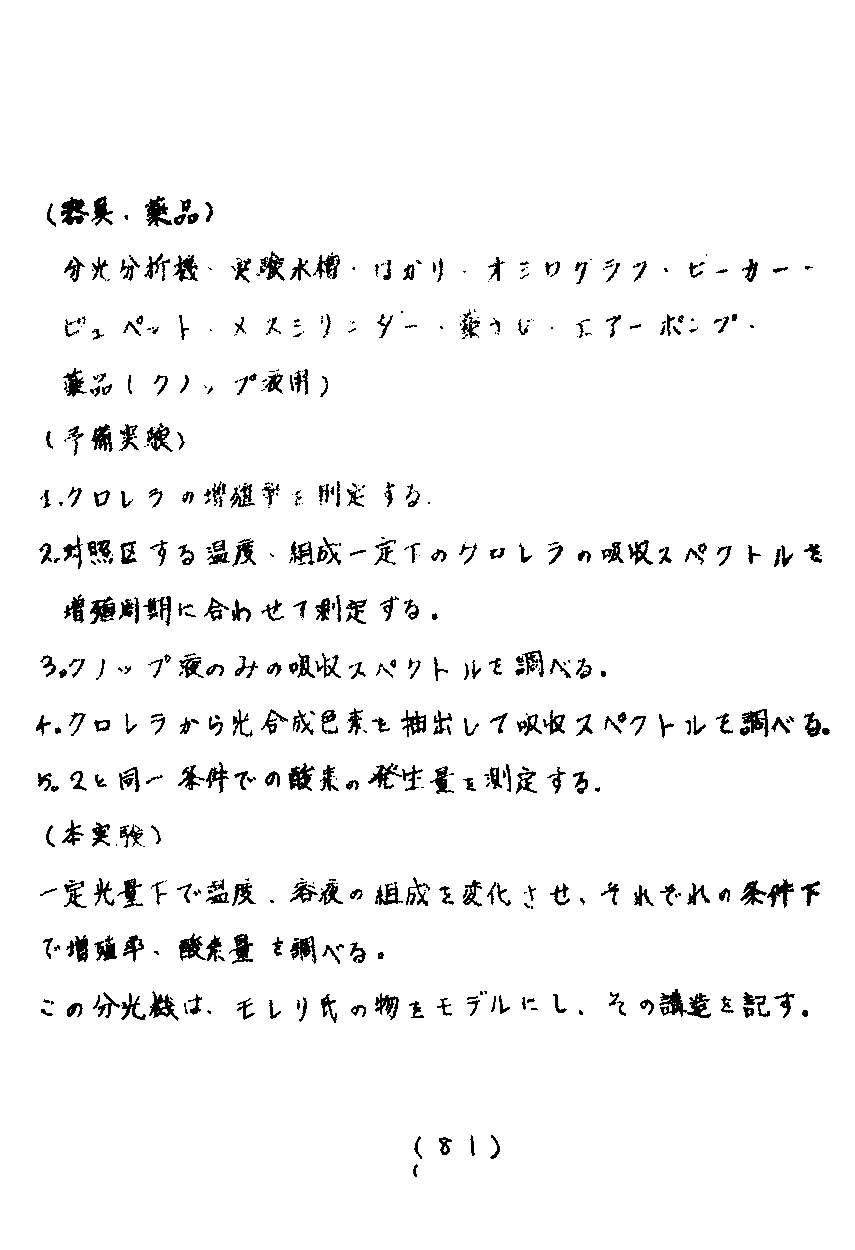 (器具、薬品)
分光分析機・実験水槽・はかり・オミログラフ・ビーカー・
ビュペット・メスミリンダー・薬うじ・エアーポンプ・
薬品(クノップ液用)
(予備実験)
1.クロレラの増殖率を測定する.
2.対照区する温度、組成一定下のクロレラの吸収スペクトルを
増殖周期に合わせて測定する。
3.クノップ液のみの吸収スペクトルを調べる。
4.クロレラから光合成色素を抽出して吸収スペクトルを調べる。
5.2と同一条件での酸素の発生量を測定する.
(本実験)
一定光量下で温度、溶液の組成を変化させ、それぞれの条件下
で増殖率、酸素量を調べる。
この分光機は、モレリ氏の物をモデルにし、その構造を記す。
(81)